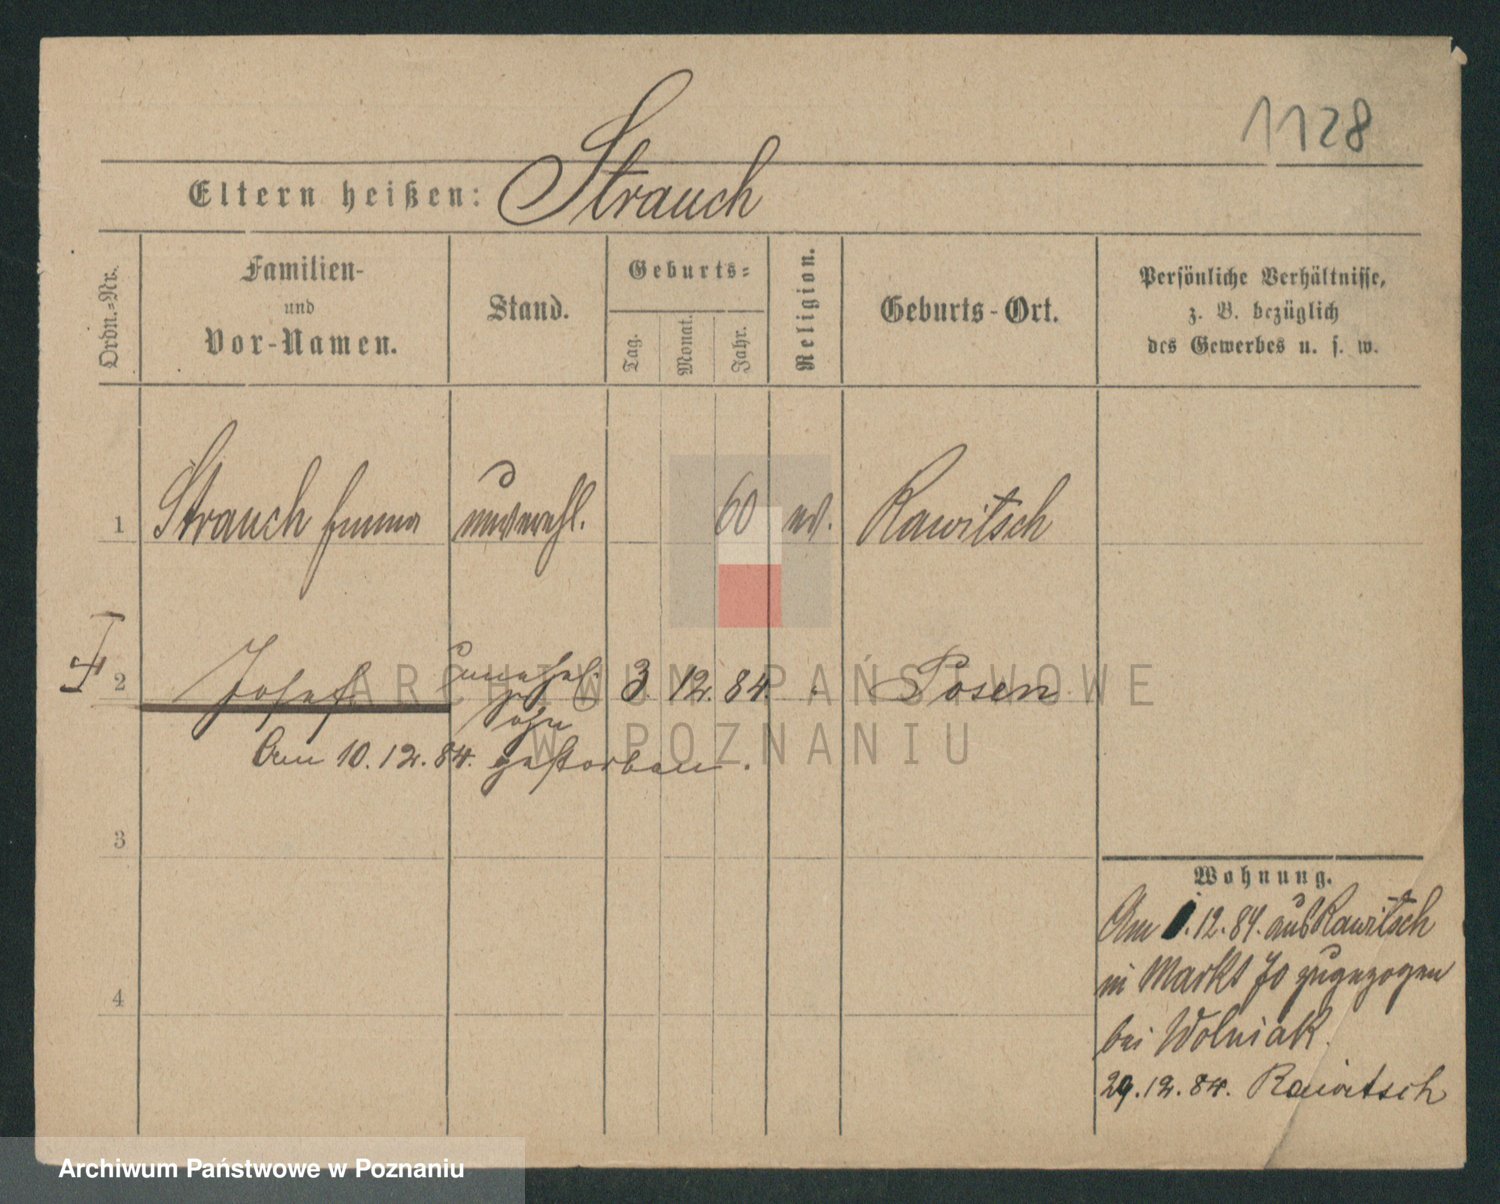 1128
Eltern heißen: Strauch
Ordn.-Nr.
Familien-
und
Vor-Namen.
Stand.
Geburts-
Tag.
Monat.
Jahr.
Religion.
Geburts-Ort.
Persönliche Verhältnisse,
z. B. bezüglich
des Gewerbes u. s. w.
1 Strauch Emma unverehl. 60 ev. Rawitsch
2 Josef unehel. 3 12. 84. Posen
Sohn
Am 10.12.84. gestorben.
3
4
Wohnung.
Am 1.12.84. aus Rawitsch
in Markt 70 zugezogen
bei Wolniak.
29.12.84. Rawitsch
ARCHIWUM PAŃSTWOWE
W POZNANIU
Archiwum Państwowe w Poznaniu